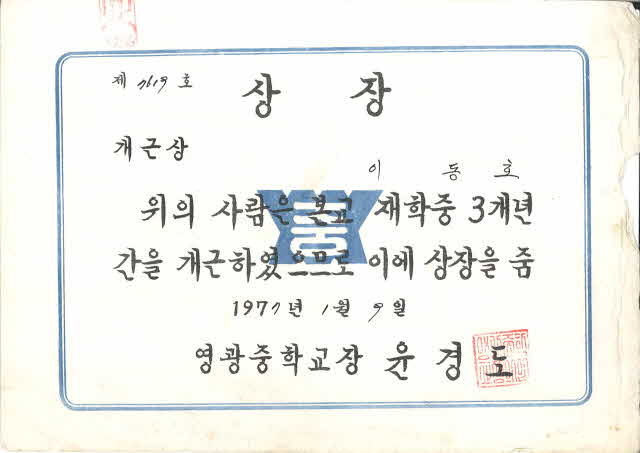 제 7619 호
상 장
개근상
이 동 호
위의 사람은 본교 재학중 3개년
간을 개근하였으므로 이에 상장을 줌
1977년 1월 9일
영광중학교장 윤 경 도